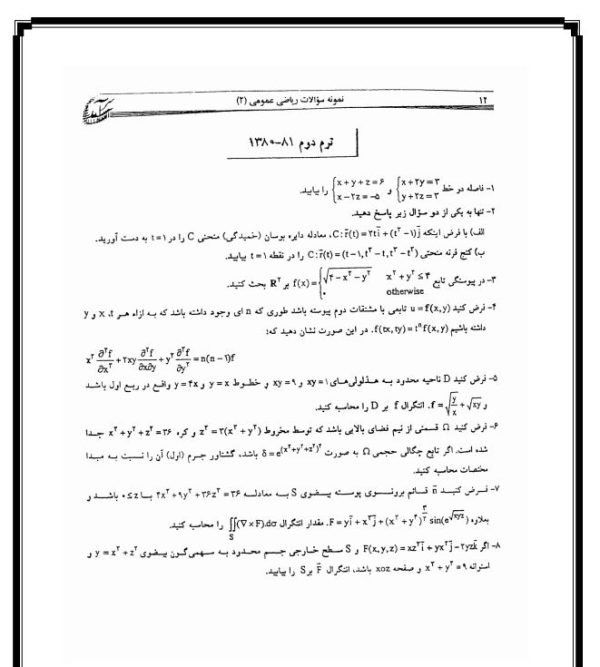 ۱۲ نمونه سؤالات ریاضی عمومی (۲)
ترم دوم ۸۱-۱۳۸۰
۱- فاصله دو خط { x + ۲y = ۳ , y + ۲z = ۳ و { x + y + z = ۶ , x - ۲z = -۵ را بیابید.
۲- تنها به یکی از دو سؤال زیر پاسخ دهید.
الف) با فرض اینکه C: r̄(t) = ۲t ī + (t² - ۱) j̄، معادله دایره بوسان (خمیدگی) منحنی C را در t = ۱ به دست آورید.
ب) کنج فرنه منحنی C: r̄(t) = (t - ۱, t² - ۱, t³ - t²) را در نقطه t = ۱ بیابید.
۳- در پیوستگی تابع f(x) = { √(۴ - x² - y²) x² + y² ≤ ۴ , ۰ otherwise بر R² بحث کنید.
۴- فرض کنید u = f(x, y) تابعی با مشتقات دوم پیوسته باشد طوری که n ای وجود داشته باشد که به ازاء هر x ،t و y
داشته باشیم f(tx, ty) = tⁿ f(x, y). در این صورت نشان دهید که:
x² ∂²f/∂x² + ۲xy ∂²f/∂x∂y + y² ∂²f/∂y² = n(n - ۱)f
۵- فرض کنید D ناحیه محدود به هذلولی‌های xy = ۱ و xy = ۹ و خطوط y = x و y = ۴x واقع در ربع اول باشد
و f = √(y/x) + √xy. انتگرال f بر D را محاسبه کنید.
۶- فرض کنید Ω قسمتی از نیم فضای بالایی باشد که توسط مخروط z² = ۳(x² + y²) و کره x² + y² + z² = ۳۶ جدا
شده است. اگر تابع چگالی حجمی Ω به صورت δ = e^(x²+y²+z²)² باشد، گشتاور جرم (اول) آن را نسبت به مبدا
مختصات محاسبه کنید.
۷- فرض کنید n̄ قائم برونسوی پوسته بیضوی S به معادله ۴x² + ۹y² + ۳۶z² = ۳۶ با z ≥ ۰ باشد و
بعلاوه F = y ī + x² j̄ + (x² + y²)^(۳/۲) sin(e^√xyz). مقدار انتگرال ∬_S (∇ × F).dσ را محاسبه کنید.
۸- اگر F(x, y, z) = xz² ī + yx² j̄ - ۲yz k̄ و S سطح خارجی جسم محدود به سهمی‌گون بیضوی y = x² + z² و
استوانه x² + y² = ۹ و صفحه xoz باشد، انتگرال F̄ بر S را بیابید.